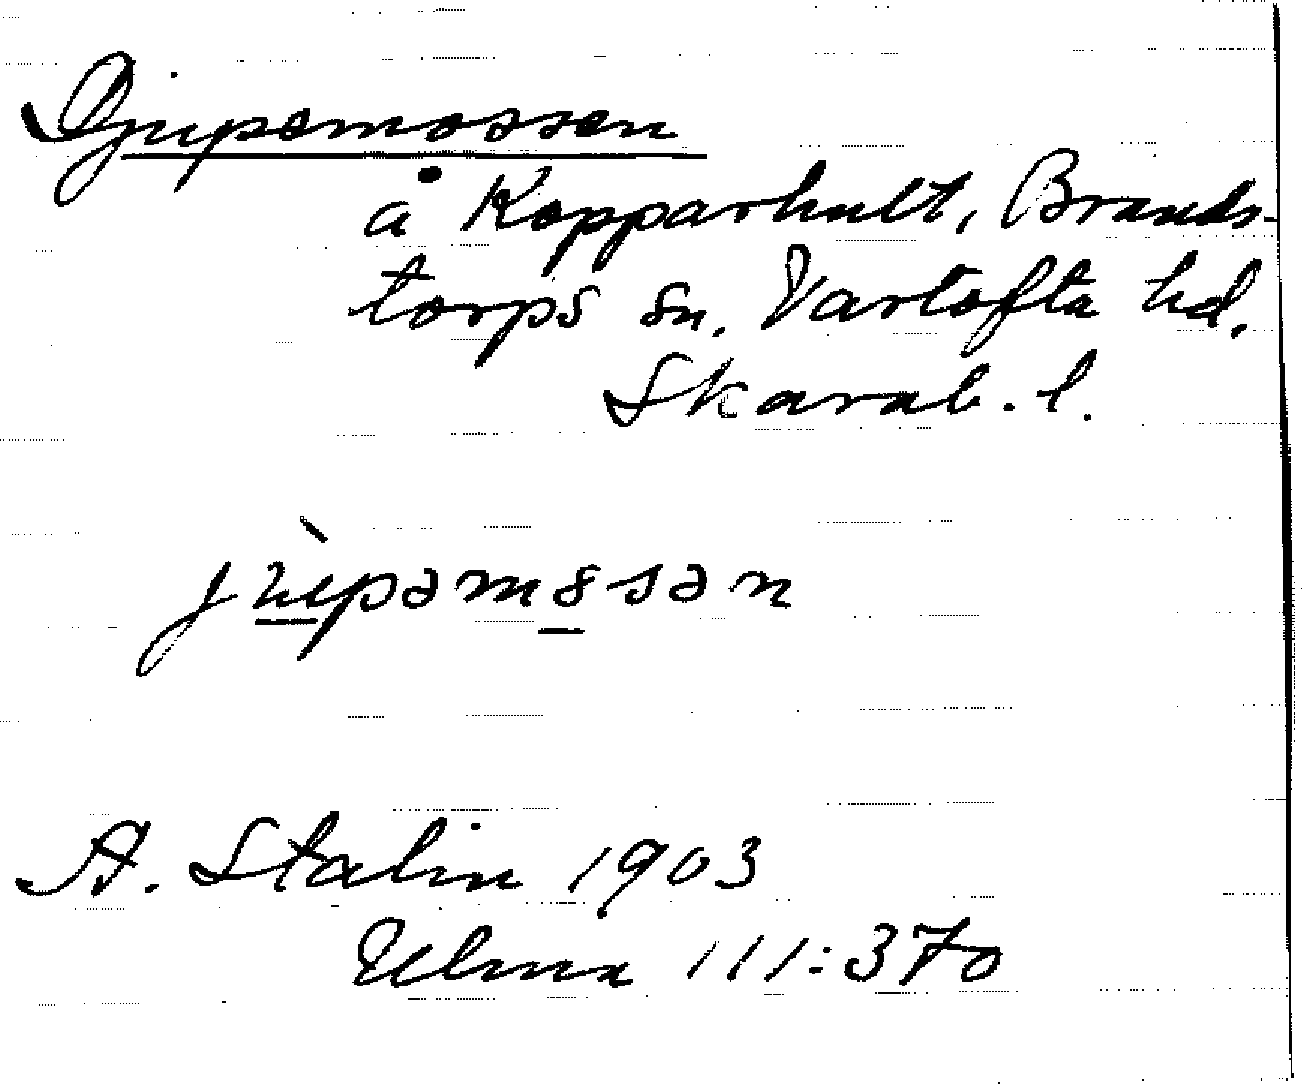 Djupemossen
å Kopparhult, Brands-
torps sn. Vartofta hd.
Skarab. l.
A. Stalin 1903
Ulma 111:370